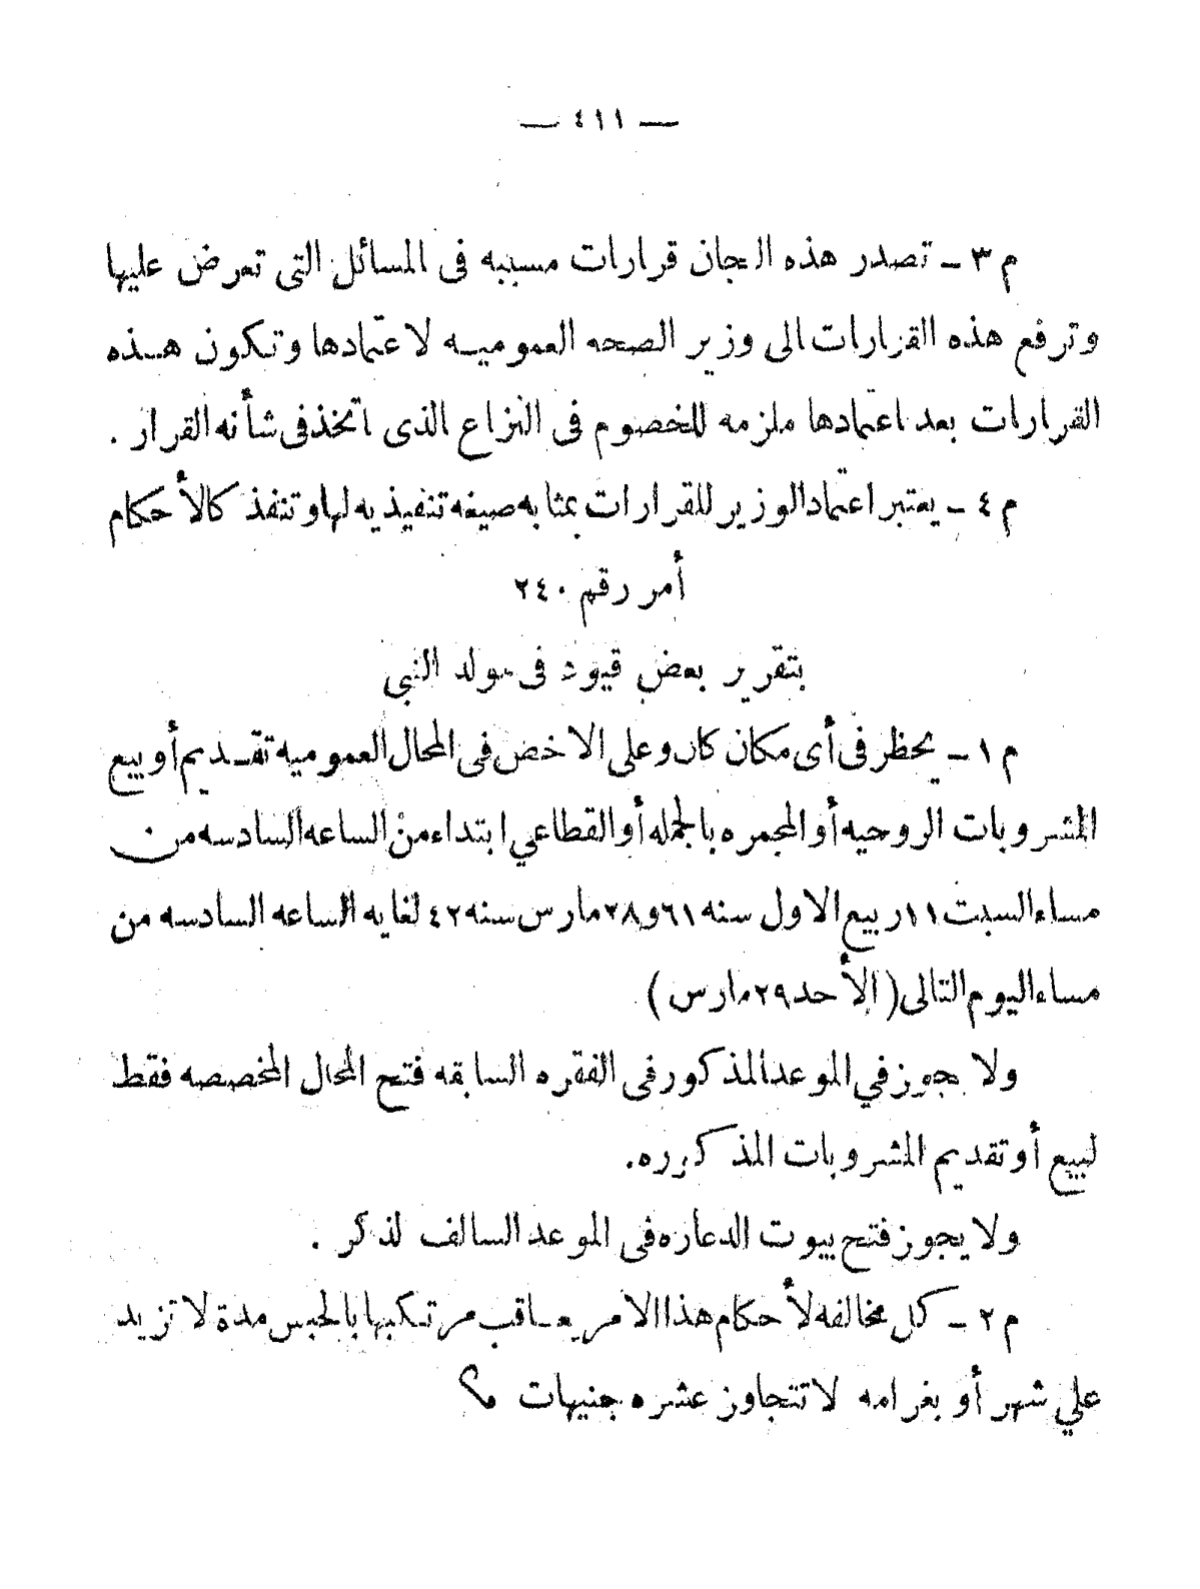 — ٤١١ —
م ٣ — تصدر هذه اللجان قرارات مسببه فى المسائل التى تعرض عليها
وترفع هذه القرارات الى وزير الصحه العموميه لاعتمادها وتكون هذه
القرارات بعد اعتمادها ملزمه للخصوم فى النزاع الذى اتخذ فى شأنه القرار .
م ٤ — يعتبر اعتماد الوزير للقرارات بمثابه صيغه تنفيذيه لها وتنفذ كالأحكام
أمر رقم ٢٤٠
بتقرير بعض قيود فى مولد النبى
م ١ — يحظر فى أى مكان كان وعلى الاخص فى المحال العموميه تقديم أو بيع
المشروبات الروحيه أو المخمره بالجمله أو القطاعي ابتداء من الساعه السادسه من
مساء السبت ١١ ربيع الاول سنه ٦١ و ٢٨ مارس سنه ٤٢ لغايه الساعه السادسه من
مساء اليوم التالى ( الأحد ٢٩ مارس )
ولا يجوز في الموعد المذكور فى الفقره السابقه فتح المحال المخصصه فقط
لبيع أو تقديم المشروبات المذكوره .
ولا يجوز فتح بيوت الدعاره فى الموعد السالف لذكر .
م ٢ — كل مخالفه لأحكام هذا الامر يعاقب مرتكبها بالحبس مدة لا تزيد
علي شهر أو بغرامه لا تتجاوز عشره جنيهات